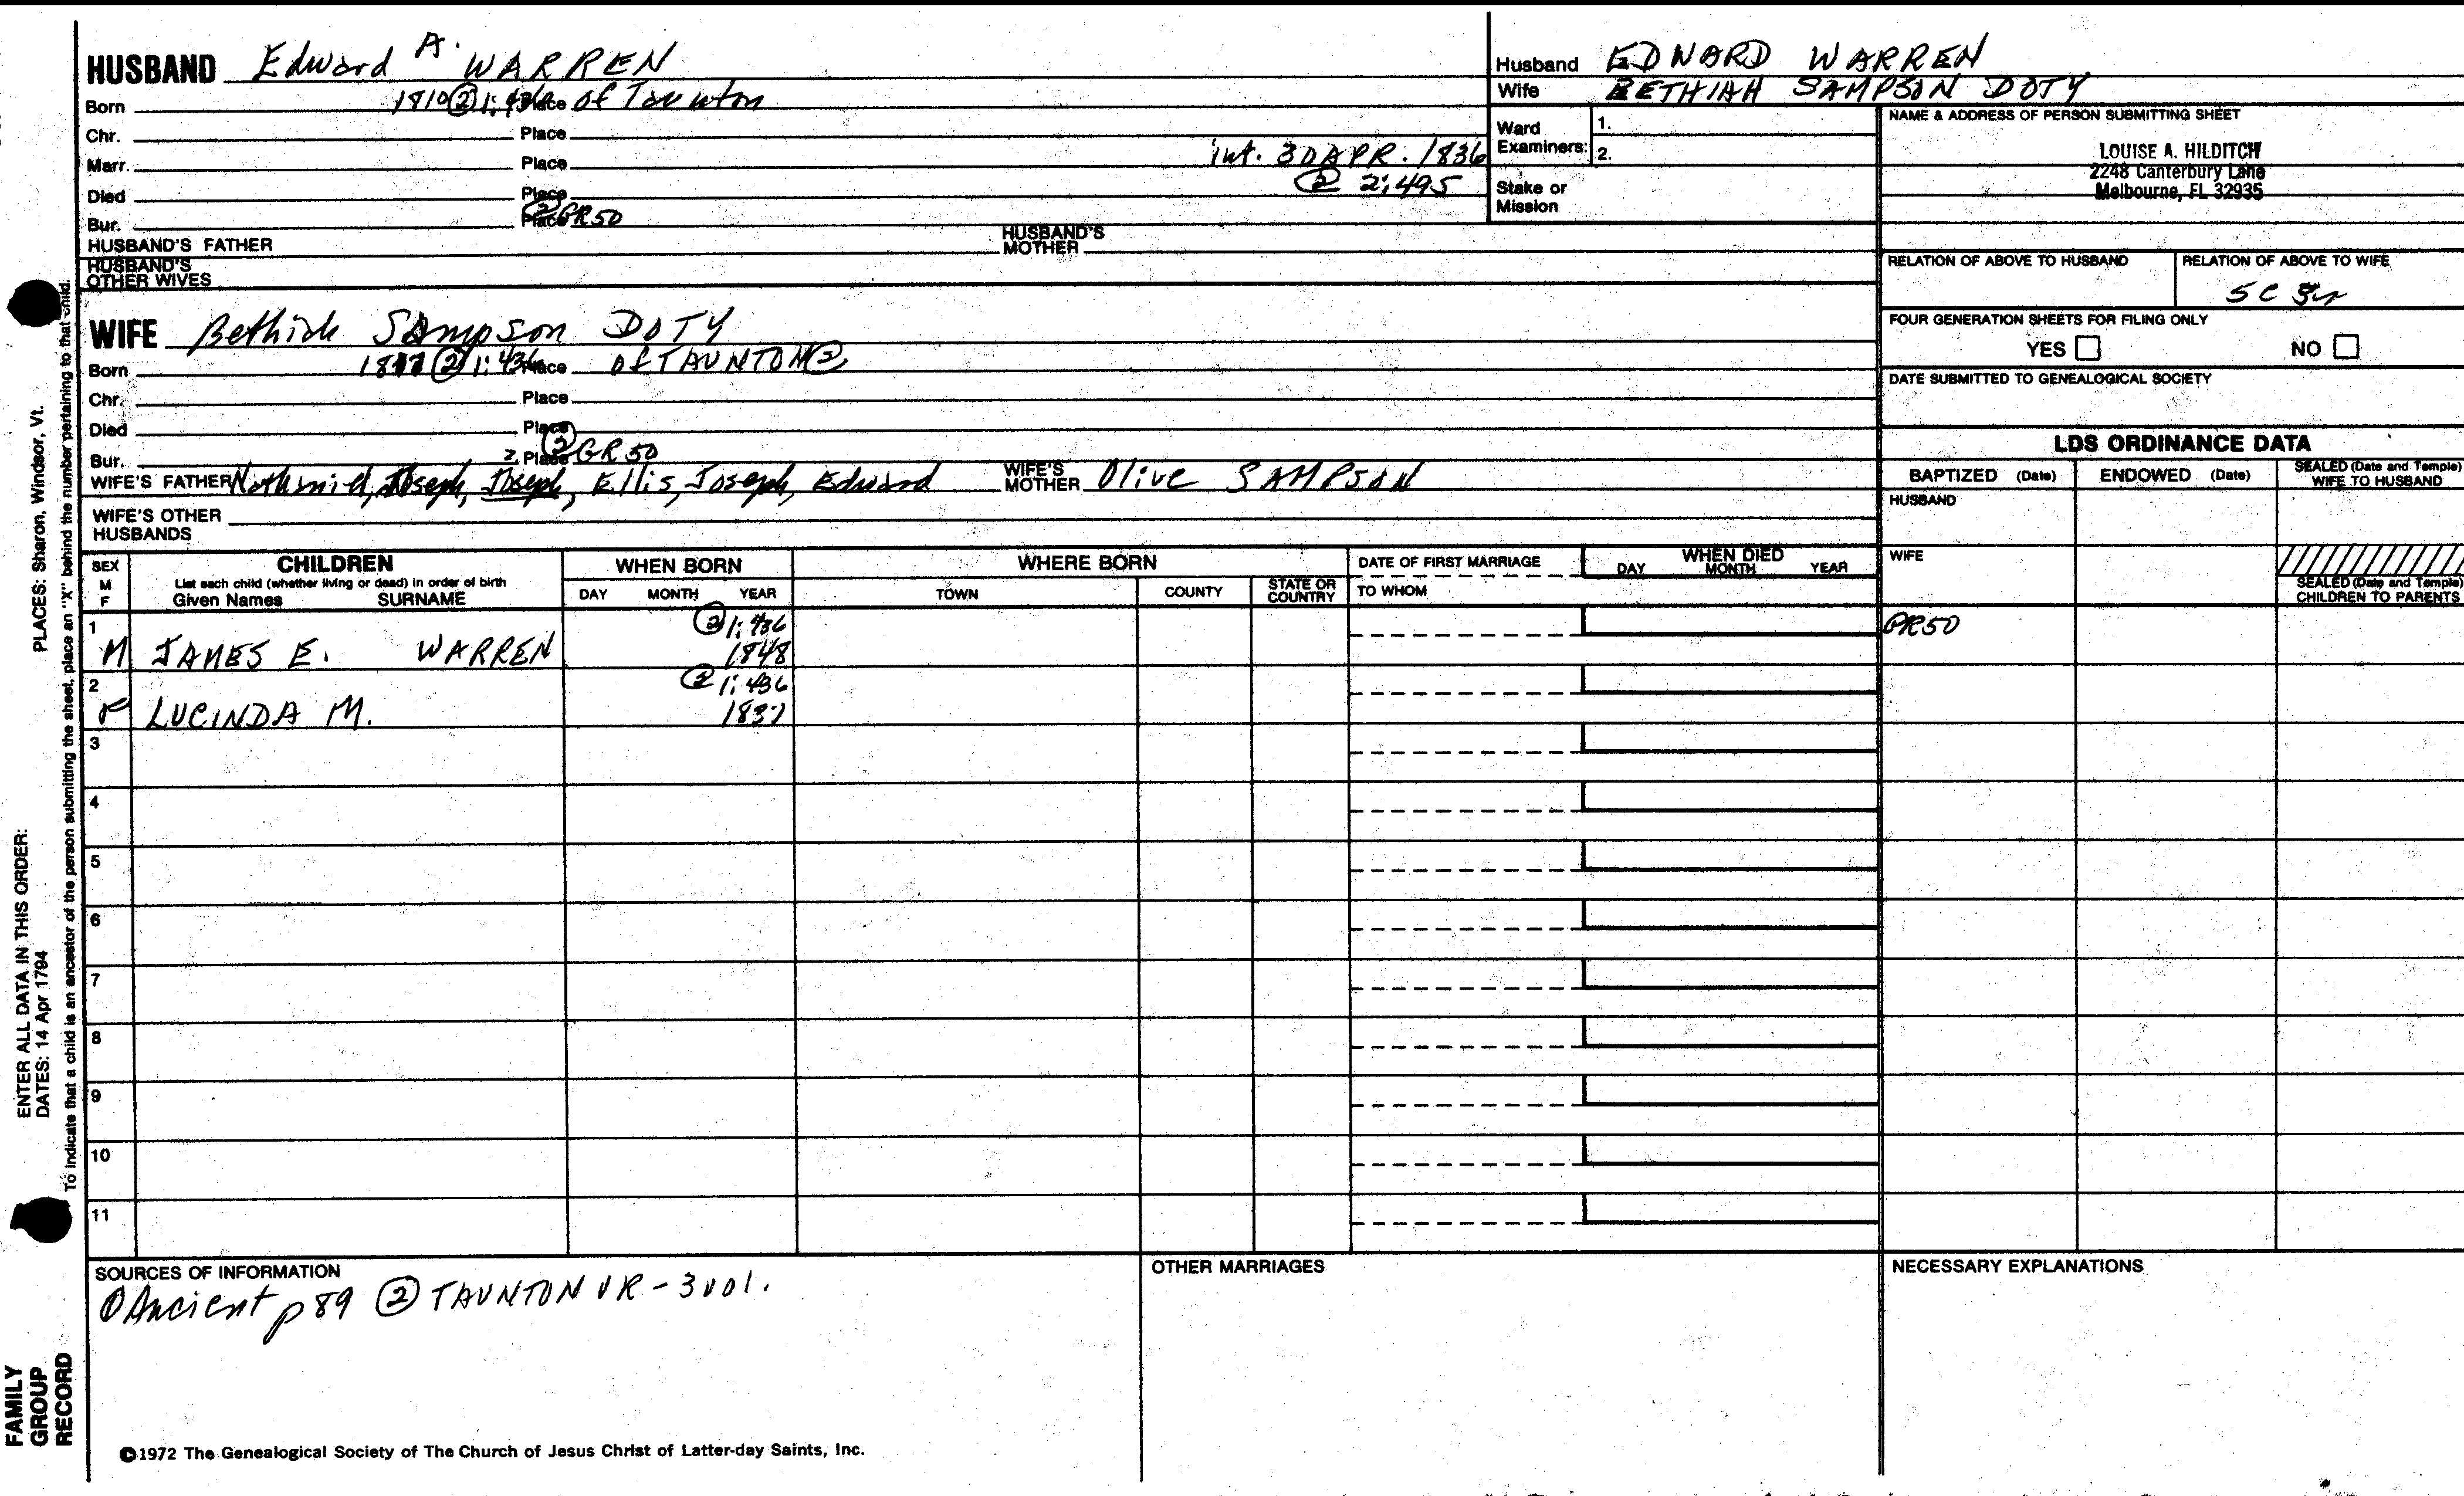 HUSBAND Edward A. WARREN
Born 1810 ② 1:436 Place of Taunton
Chr. Place
Marr. Place int. 30 APR. 1836
Died Place ② 2:495
Bur. Place ② GR50
HUSBAND'S FATHER HUSBAND'S MOTHER
HUSBAND'S OTHER WIVES
Husband EDWARD WARREN
Wife BETHIAH SAMPSON DOTY
Ward Examiners: 1.
2.
Stake or Mission
NAME & ADDRESS OF PERSON SUBMITTING SHEET
LOUISE A. HILDITCH
2248 Canterbury Lane
Melbourne, FL 32935
RELATION OF ABOVE TO HUSBAND RELATION OF ABOVE TO WIFE
5C
FOUR GENERATION SHEETS FOR FILING ONLY
YES NO
DATE SUBMITTED TO GENEALOGICAL SOCIETY
WIFE Bethiah Sampson DOTY
Born ② 1:436 Place of TAUNTON ②
Chr. Place
Died Place
Bur. 2. Place ② GR 50
WIFE'S FATHER Nathaniel, Joseph, Joseph, Ellis, Joseph, Edward WIFE'S MOTHER Olive SAMPSON
WIFE'S OTHER HUSBANDS
LDS ORDINANCE DATA
BAPTIZED (Date) ENDOWED (Date) SEALED (Date and Temple) WIFE TO HUSBAND
HUSBAND
WIFE
SEALED (Date and Temple) CHILDREN TO PARENTS
SEX M F CHILDREN
List each child (whether living or dead) in order of birth
Given Names SURNAME
WHEN BORN
DAY MONTH YEAR
WHERE BORN
TOWN COUNTY STATE OR COUNTRY
DATE OF FIRST MARRIAGE
TO WHOM
WHEN DIED
DAY MONTH YEAR
1 ② 1:436 GR50
M JAMES E. WARREN 1848
2 ② 1:436
F LUCINDA M. 1837
3
4
5
6
7
8
9
10
11
SOURCES OF INFORMATION
① Ancient p 89 ② TAUNTON VR - 3 vol.
OTHER MARRIAGES
NECESSARY EXPLANATIONS
©1972 The Genealogical Society of The Church of Jesus Christ of Latter-day Saints, Inc.
FAMILY GROUP RECORD
ENTER ALL DATA IN THIS ORDER:
DATES: 14 Apr 1794 PLACES: Sharon, Windsor, Vt.
To indicate that a child is an ancestor of the person submitting the sheet, place an "X" behind the number pertaining to that child.